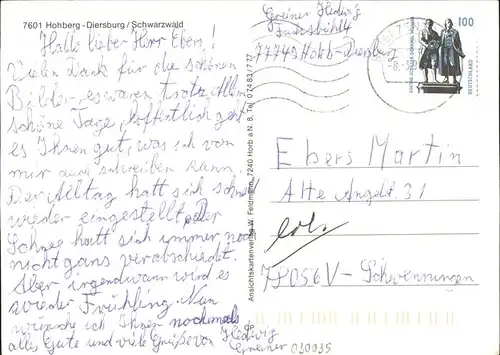 7601 Hohberg - Diersburg / Schwarzwald
Hallo lieber Herr Ebers!
Vielen Dank für die schönen
Bilder, es waren trotz Allem
schöne Tage, hoffentlich geht
es Ihnen gut, was ich von
mir auch schreiben kann.
Der Alltag hatt sich schnell
wieder eingestellt. Der
Schnee hatt sich immer noch
nicht ganz verabschiedet.
Aber irgendwann wird es
wieder Frühling. Nun
wünsche ich Ihnen nochmals
alles Gute und viele Grüße von Hedwig
Greiner
Ansichtskartenverlag W. Feldmann, 7240 Horb a. N. B, Tel. 07483/777
Greiner Hedwig
77749 Hohb-Diersburg
100
DEUTSCHLAND
Ebers Martin
Alte Angelt. 31
78056 V-Schwenningen
030035